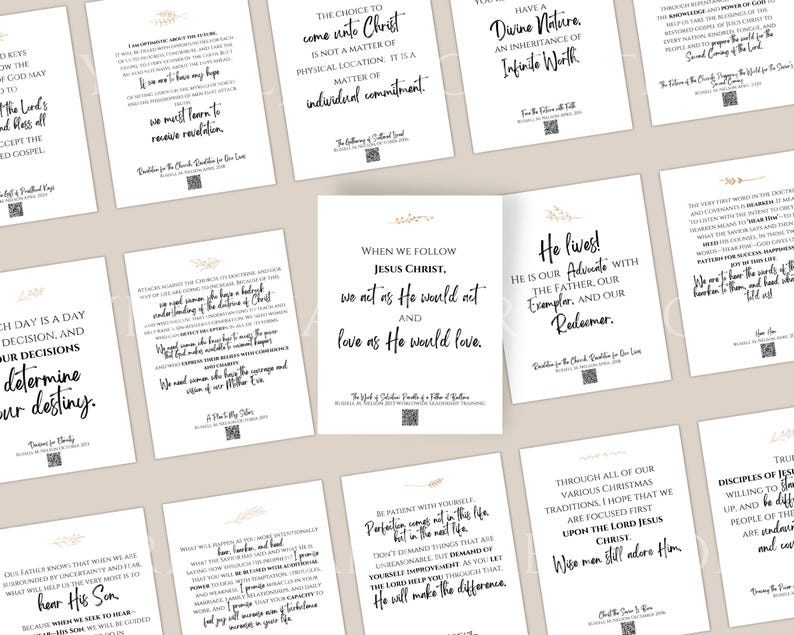 D KEYS
OW THE
OF GOD MAY
D TO
t the Lord's
nd bless all
ACCEPT THE
ED GOSPEL.
Gift of Priesthood Keys
M. NELSON APRIL 2024
I AM OPTIMISTIC ABOUT THE FUTURE.
IT WILL BE FILLED WITH OPPORTUNITIES FOR EACH
OF US TO PROGRESS, CONTRIBUTE, AND TAKE THE
GOSPEL TO EVERY CORNER OF THE EARTH. BUT I
AM ALSO NOT NAIVE ABOUT THE DAYS AHEAD.
If we are to have any hope
OF SIFTING THROUGH THE MYRIAD OF VOICES
AND THE PHILOSOPHIES OF MEN THAT ATTACK
TRUTH,
we must learn to
receive revelation.
Revelation for the Church, Revelation for Our Lives
RUSSELL M. NELSON APRIL 2018
THE CHOICE TO
come unto Christ
IS NOT A MATTER OF
PHYSICAL LOCATION; IT IS A
MATTER OF
individual commitment.
The Gathering of Scattered Israel
RUSSELL M. NELSON OCTOBER 2006
HAVE A
Divine Nature,
AN INHERITANCE OF
Infinite Worth.
Face the Future with Faith
RUSSELL M. NELSON APRIL 2011
THROUGH REPENTANCE
THE KNOWLEDGE AND POWER OF GOD TO
HELP US TAKE THE BLESSINGS OF THE
RESTORED GOSPEL OF JESUS CHRIST TO
EVERY NATION, KINDRED, TONGUE, AND
PEOPLE AND TO prepare the world for the
Second Coming of the Lord.
The Future of the Church: Preparing the World for the Savior's
Second Coming
RUSSELL M. NELSON APRIL 2020
CH DAY IS A DAY
DECISION, AND
OUR DECISIONS
determine
our destiny.
Decisions for Eternity
RUSSELL M. NELSON OCTOBER 2013
ATTACKS AGAINST THE CHURCH, ITS DOCTRINE, AND OUR
WAY OF LIFE ARE GOING TO INCREASE. BECAUSE OF THIS,
we need women who have a bedrock
understanding of the doctrine of Christ
AND WHO WILL USE THAT UNDERSTANDING TO TEACH AND
HELP RAISE A SIN-RESISTANT GENERATION. WE NEED WOMEN
WHO CAN DETECT DECEPTION IN ALL OF ITS FORMS.
We need women who know how to access the power
that God makes available to covenant keepers
AND WHO EXPRESS THEIR BELIEFS WITH CONFIDENCE
AND CHARITY.
We need women who have the courage and
vision of our Mother Eve.
A Plea to My Sisters
RUSSELL M. NELSON OCTOBER 2015
WHEN WE FOLLOW
JESUS CHRIST,
we act as He would act
AND
love as He would love.
The Work of Salvation: Parable of a Father at Bedtime
RUSSELL M. NELSON 2013 WORLDWIDE LEADERSHIP TRAINING
He lives!
HE IS OUR Advocate WITH
THE FATHER, OUR
Exemplar, AND OUR
Redeemer.
Revelation for the Church, Revelation for Our Lives
RUSSELL M. NELSON APRIL 2018
THE VERY FIRST WORD IN THE DOCTRIN
AND COVENANTS IS HEARKEN. IT MEA
"TO LISTEN WITH THE INTENT TO OBEY
HEARKEN MEANS TO "HEAR HIM"—TO
WHAT THE SAVIOR SAYS AND THEN
HEED HIS COUNSEL. IN THOSE TW
WORDS—"HEAR HIM"—GOD GIVES U
PATTERN FOR SUCCESS, HAPPINES
JOY IN THIS LIFE.
We are to hear the words of th
hearken to them, and heed wha
told us!
Hear Him
RUSSELL M. NELSON APRIL 2020
OUR FATHER KNOWS THAT WHEN WE ARE
SURROUNDED BY UNCERTAINTY AND FEAR,
WHAT WILL HELP US THE VERY MOST IS TO
hear His Son.
BECAUSE WHEN WE SEEK TO HEAR—
HEAR—HIS SON, WE WILL BE GUIDED
WHAT WILL HAPPEN AS YOU MORE INTENTIONALLY
hear, hearken, and heed
WHAT THE SAVIOR HAS SAID AND WHAT HE IS
SAYING NOW THROUGH HIS PROPHETS? I promise
THAT YOU WILL BE BLESSED WITH ADDITIONAL
POWER TO DEAL WITH TEMPTATION, STRUGGLES,
AND WEAKNESS. I promise MIRACLES IN YOUR
MARRIAGE, FAMILY RELATIONSHIPS, AND DAILY
WORK. AND I promise THAT YOUR CAPACITY TO
feel joy will increase even if turbulence
increases in your life.
BE PATIENT WITH YOURSELF.
Perfection comes not in this life,
but in the next life.
DON'T DEMAND THINGS THAT ARE
UNREASONABLE, BUT DEMAND OF
YOURSELF IMPROVEMENT. AS YOU LET
THE LORD HELP YOU THROUGH THAT,
He will make the difference.
THROUGH ALL OF OUR
VARIOUS CHRISTMAS
TRADITIONS, I HOPE THAT WE
ARE FOCUSED FIRST
UPON THE LORD JESUS
CHRIST.
Wise men still adore Him.
Christ the Savior Is Born
RUSSELL M. NELSON DECEMBER 2006
TRUE
DISCIPLES OF JESU
WILLING TO stan
UP, AND be diff
PEOPLE OF THE
ARE undaun
and cou
Drawing the Power o